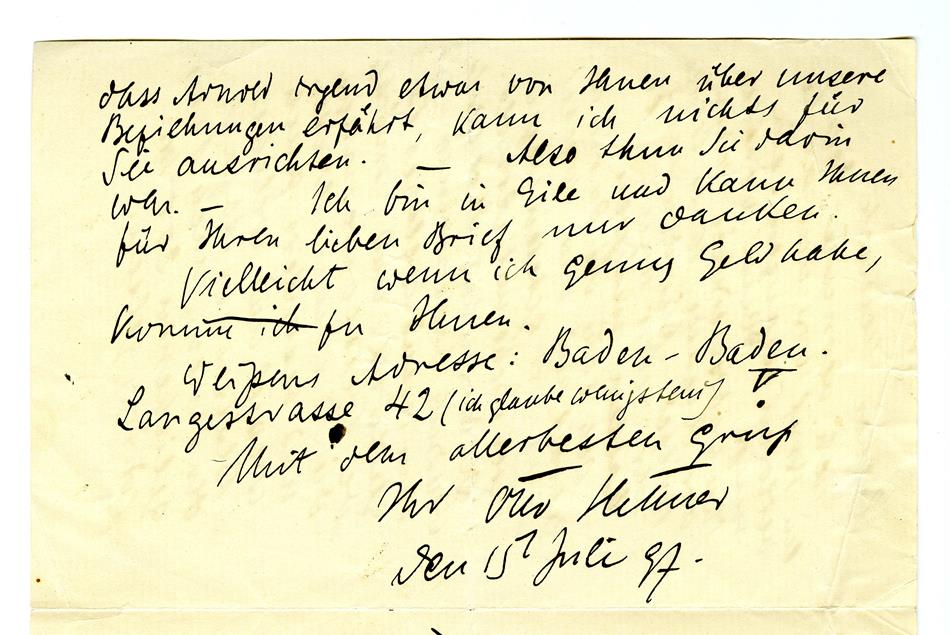 dass Arnold irgend etwas von Ihnen über unsere
Beziehungen erfährt, kann ich nichts für
Sie ausrichten. — Also thun Sie darin
wohl. — Ich bin in Eile und kann Ihnen
für Ihren lieben Brief nur danken.
Vielleicht wenn ich genug Geld habe,
komme ich zu Ihnen.
Adresse: Baden-Baden.
Langestrasse 42 (ich glaube wenigstens)
Mit dem allerbesten Gruß
Ihr Otto Hettner
den 15t Juli 97.